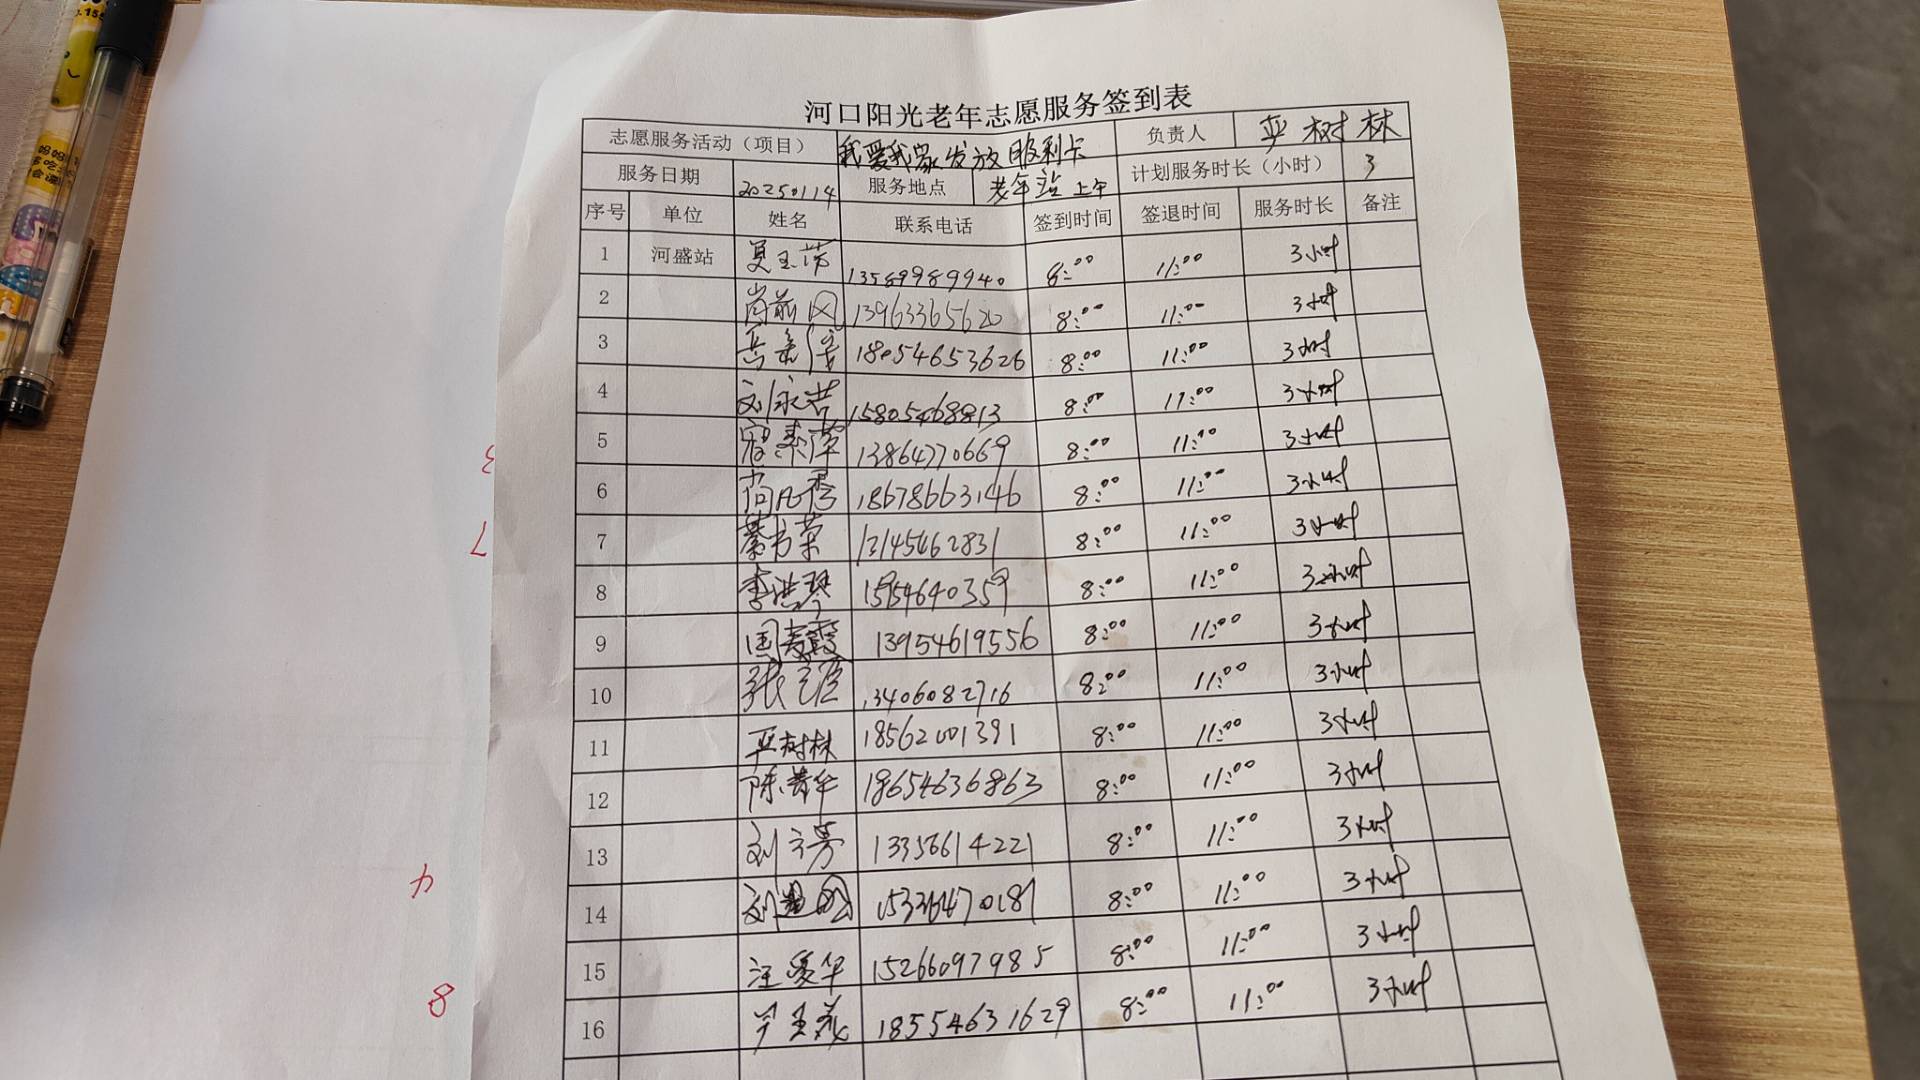 河口阳光老年志愿服务签到表
志愿服务活动（项目） 我爱我家发放服利卡 负责人 严树林
服务日期 20250114 服务地点 老年站上午 计划服务时长（小时） 3
序号 单位 姓名 联系电话 签到时间 签退时间 服务时长 备注
1 河盛站 夏玉萍 13589989940 8:00 11:00 3小时
2 尚前 13963365620 8:00 11:00 3小时
3 18054653626 8:00 11:00 3小时
4 刘永芳 15805468813 8:00 11:00 3小时
5 寇素萍 13864770669 8:00 11:00 3小时
6 18678663146 8:00 11:00 3小时
7 綦书荣 13145462831 8:00 11:00 3小时
8 李洪琴 15954640359 8:00 11:00 3小时
9 国秀霞 13954619556 8:00 11:00 3小时
10 张 13406082716 8:00 11:00 3小时
11 严树林 18562001391 8:00 11:00 3小时
12 陈黄华 18654636863 8:00 11:00 3小时
13 刘方芳 13356614221 8:00 11:00 3小时
14 刘 15336470181 8:00 11:00 3小时
15 汪爱华 15266097985 8:00 11:00 3小时
16 尹玉英 18554631629 8:00 11:00 3小时
3
7
4
8